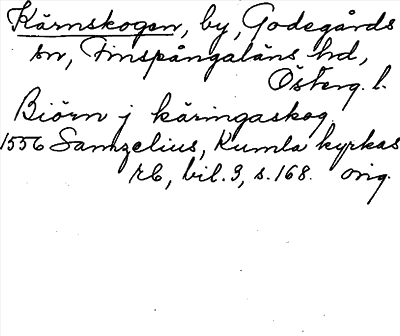 Kärnskogen, by, Godegårds
sn, Finspångaläns hd,
Österg. l.
Biörn j käringaskog.
1556 Samzelius, Kumla kyrkas
rb, bil. 3, s. 168. orig.